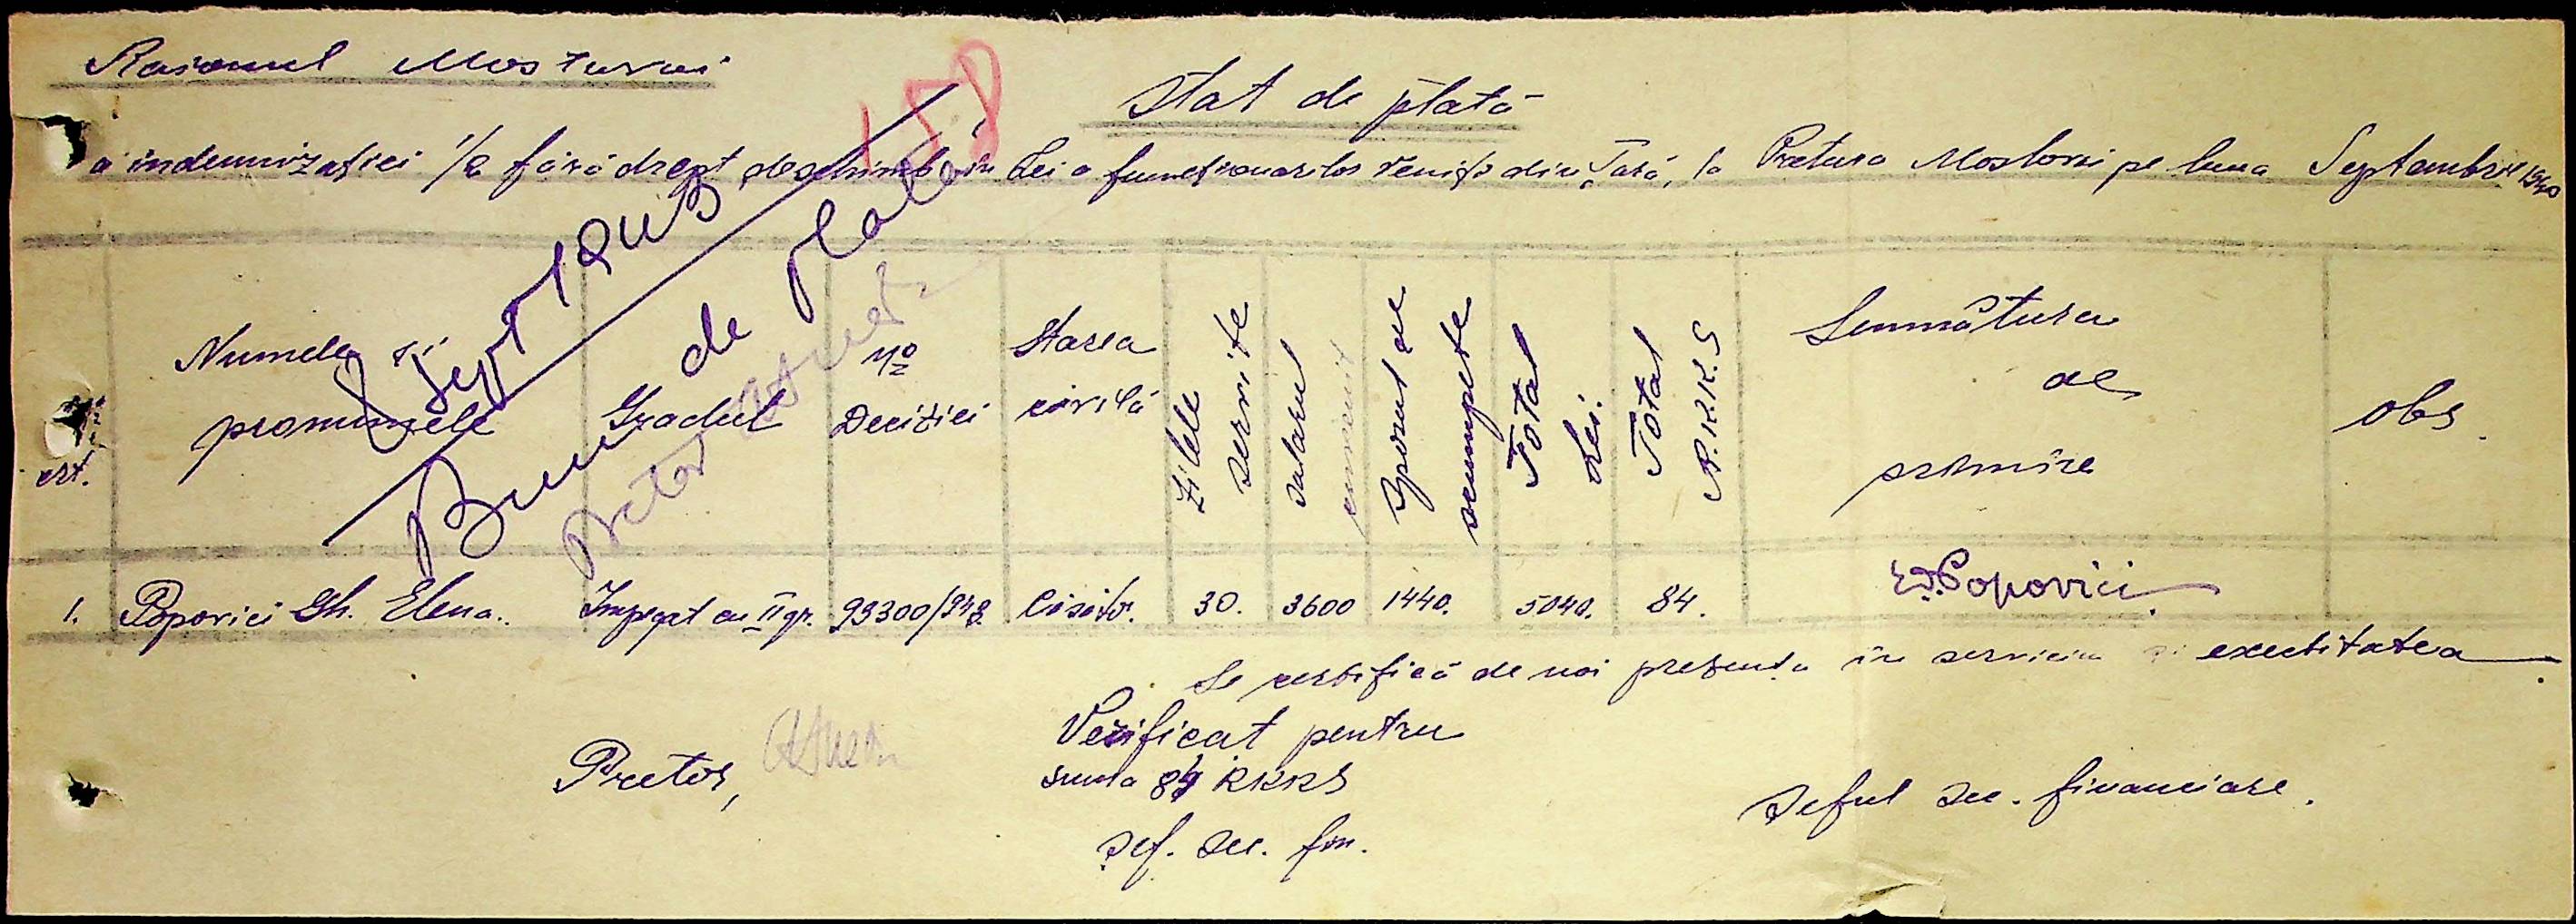 Raionul Mostovoi
158
Stat de plată
a indemnizației 1/2 fără drept de schimb în Lei a funcționarilor veniți din Țară, la Pretura Mostovoi pe luna Septembrie
Sept 1943
Bun de plată
Pretor
crt.
Numele și
pronumele
Gradul
No
Deciziei
Starea
civilă
Zilele
servite
Salarul
Sporul de
scumpete
Total
Lei.
Total
R.K.K.S
Semnătura
de
primire
Obs.
1. Popovici Gh. Elena. Impegat cu II gr. 99300/943 30. 3600 1440. 5040. 84. E. Popovici
Se certifică de noi prezența în serviciu și exectitatea
Pretor,
Verificat pentru
suma 84 RKKS
Șef. Sec. fin.
Șeful Sec. financiare.